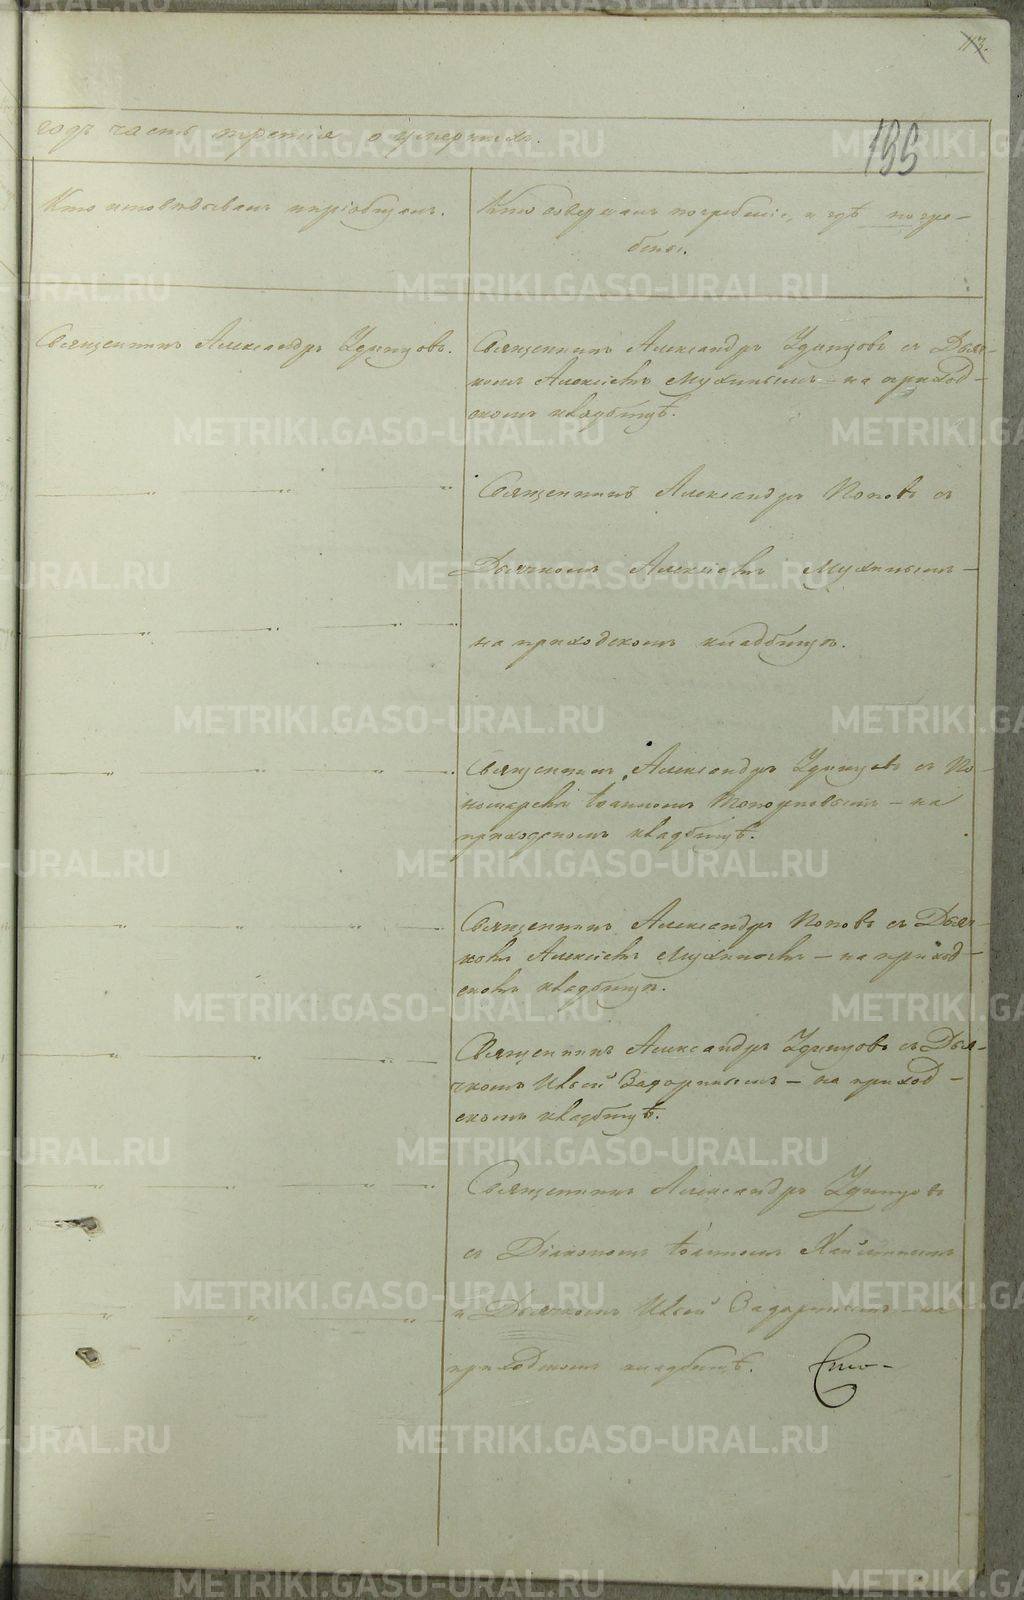 113.
195
годъ часть третія о умершихъ.
Кто исповѣдывалъ и пріобщалъ.
Кто совершалъ погребеніе, и гдѣ погре-
бены.
Священникъ Александръ Удинцовъ.
Священникъ Александръ Удинцовъ съ Дьяч-
комъ Алексіемъ Мухинымъ – на приход-
скомъ кладбищѣ.
Священникъ Александръ Поповъ съ
Дьячкомъ Алексіемъ Мухинымъ –
на приходскомъ кладбищѣ.
Священникъ Александръ Удинцовъ съ По-
номаремъ Іоанномъ Топорковымъ – на
приходскомъ кладбищѣ.
Священникъ Александръ Поповъ съ Дьяч-
комъ Алексіемъ Мухинымъ – на приход-
скомъ кладбищѣ.
Священникъ Александръ Удинцовъ съ Дья-
чкомъ Задоринымъ – на приход-
скомъ кладбищѣ.
Священникъ Александръ Удинцовъ
съ Діакономъ Іоанномъ
и Дьячкомъ Задоринымъ – на
приходскомъ кладбищѣ.
METRIKI.GASO-URAL.RU